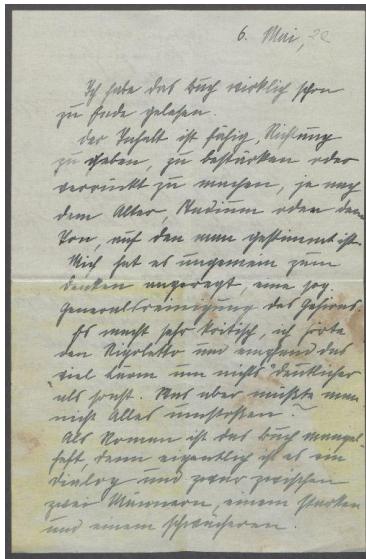 6. Mai, 20
Ich habe das Buch wirklich schon
zu Ende gelesen.
Der Inhalt ist fähig, Richtung
zu geben, zu bestärken oder
verrückt zu machen, je nach
dem Alter, Stadium oder dem
Ton, auf den man gestimmt ist.
Mich hat es ungemein zum
Denken angeregt, eine sog.
Generalreinigung des Gehirns.
Es macht sehr kritisch, ich hörte
den Rigoletto und empfand das
"viel Lärm um nichts" deutlicher
als sonst. Was aber müßte man
nicht Alles umstoßen?
Als Roman ist das Buch mangel-
haft denn eigentlich ist es ein
Dialog und zwar zwischen
zwei Männern, einem starken
und einem schwächeren.